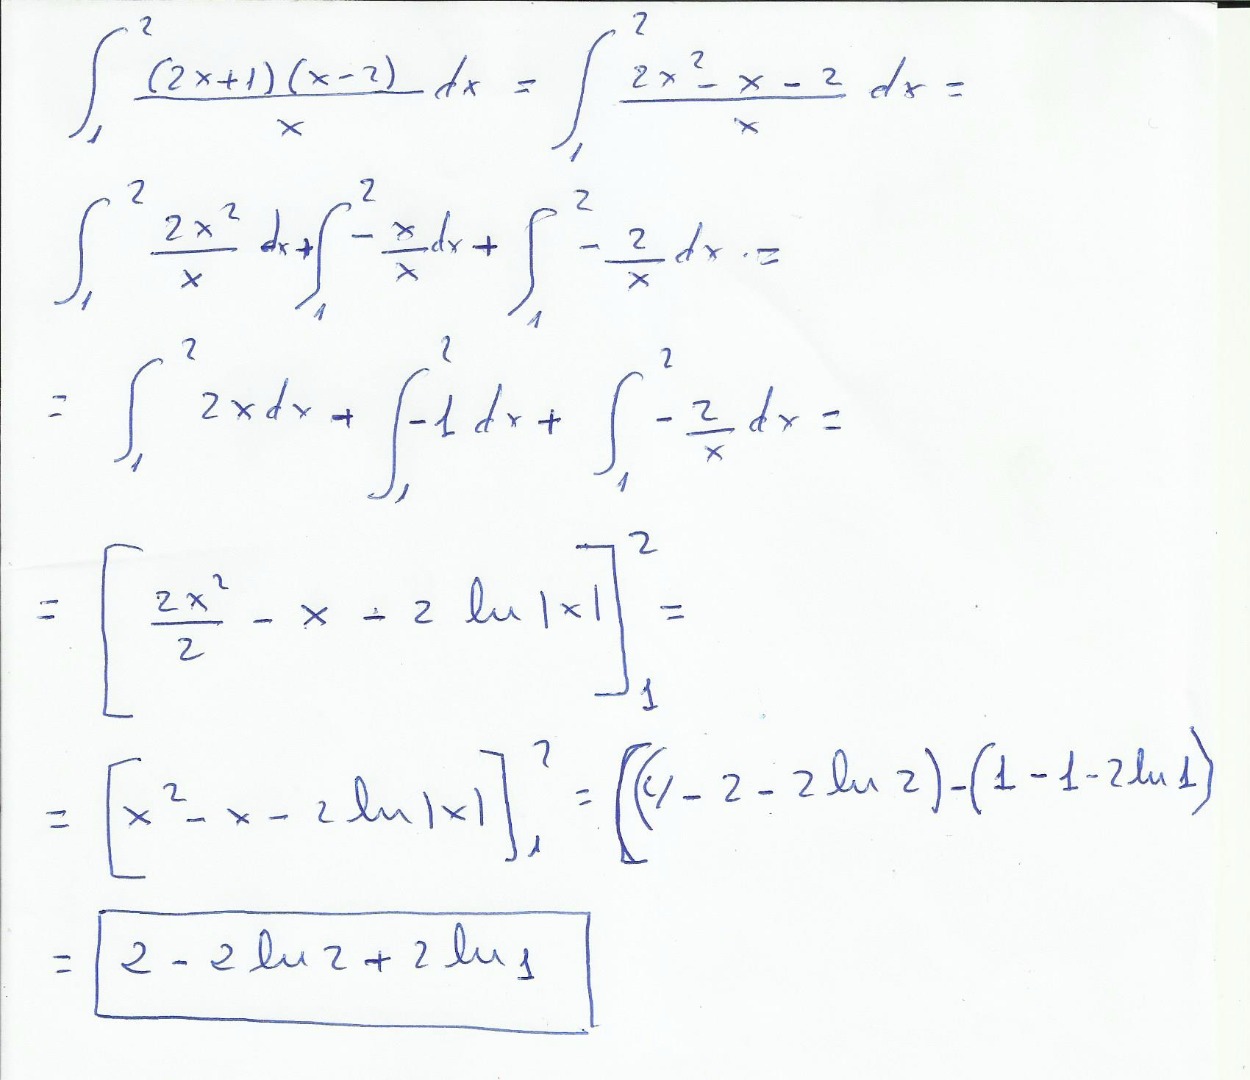 ∫₁² (2x+1)(x-2)/x dx = ∫₁² (2x² - x - 2)/x dx =
∫₁² 2x²/x dx + ∫₁² - x/x dx + ∫₁² - 2/x dx =
= ∫₁² 2x dx + ∫₁² -1 dx + ∫₁² - 2/x dx =
= [2x²/2 - x - 2 ln |x|]₁² =
= [x² - x - 2 ln |x|]₁² = ((4 - 2 - 2 ln 2) - (1 - 1 - 2 ln 1)
= 2 - 2 ln 2 + 2 ln 1